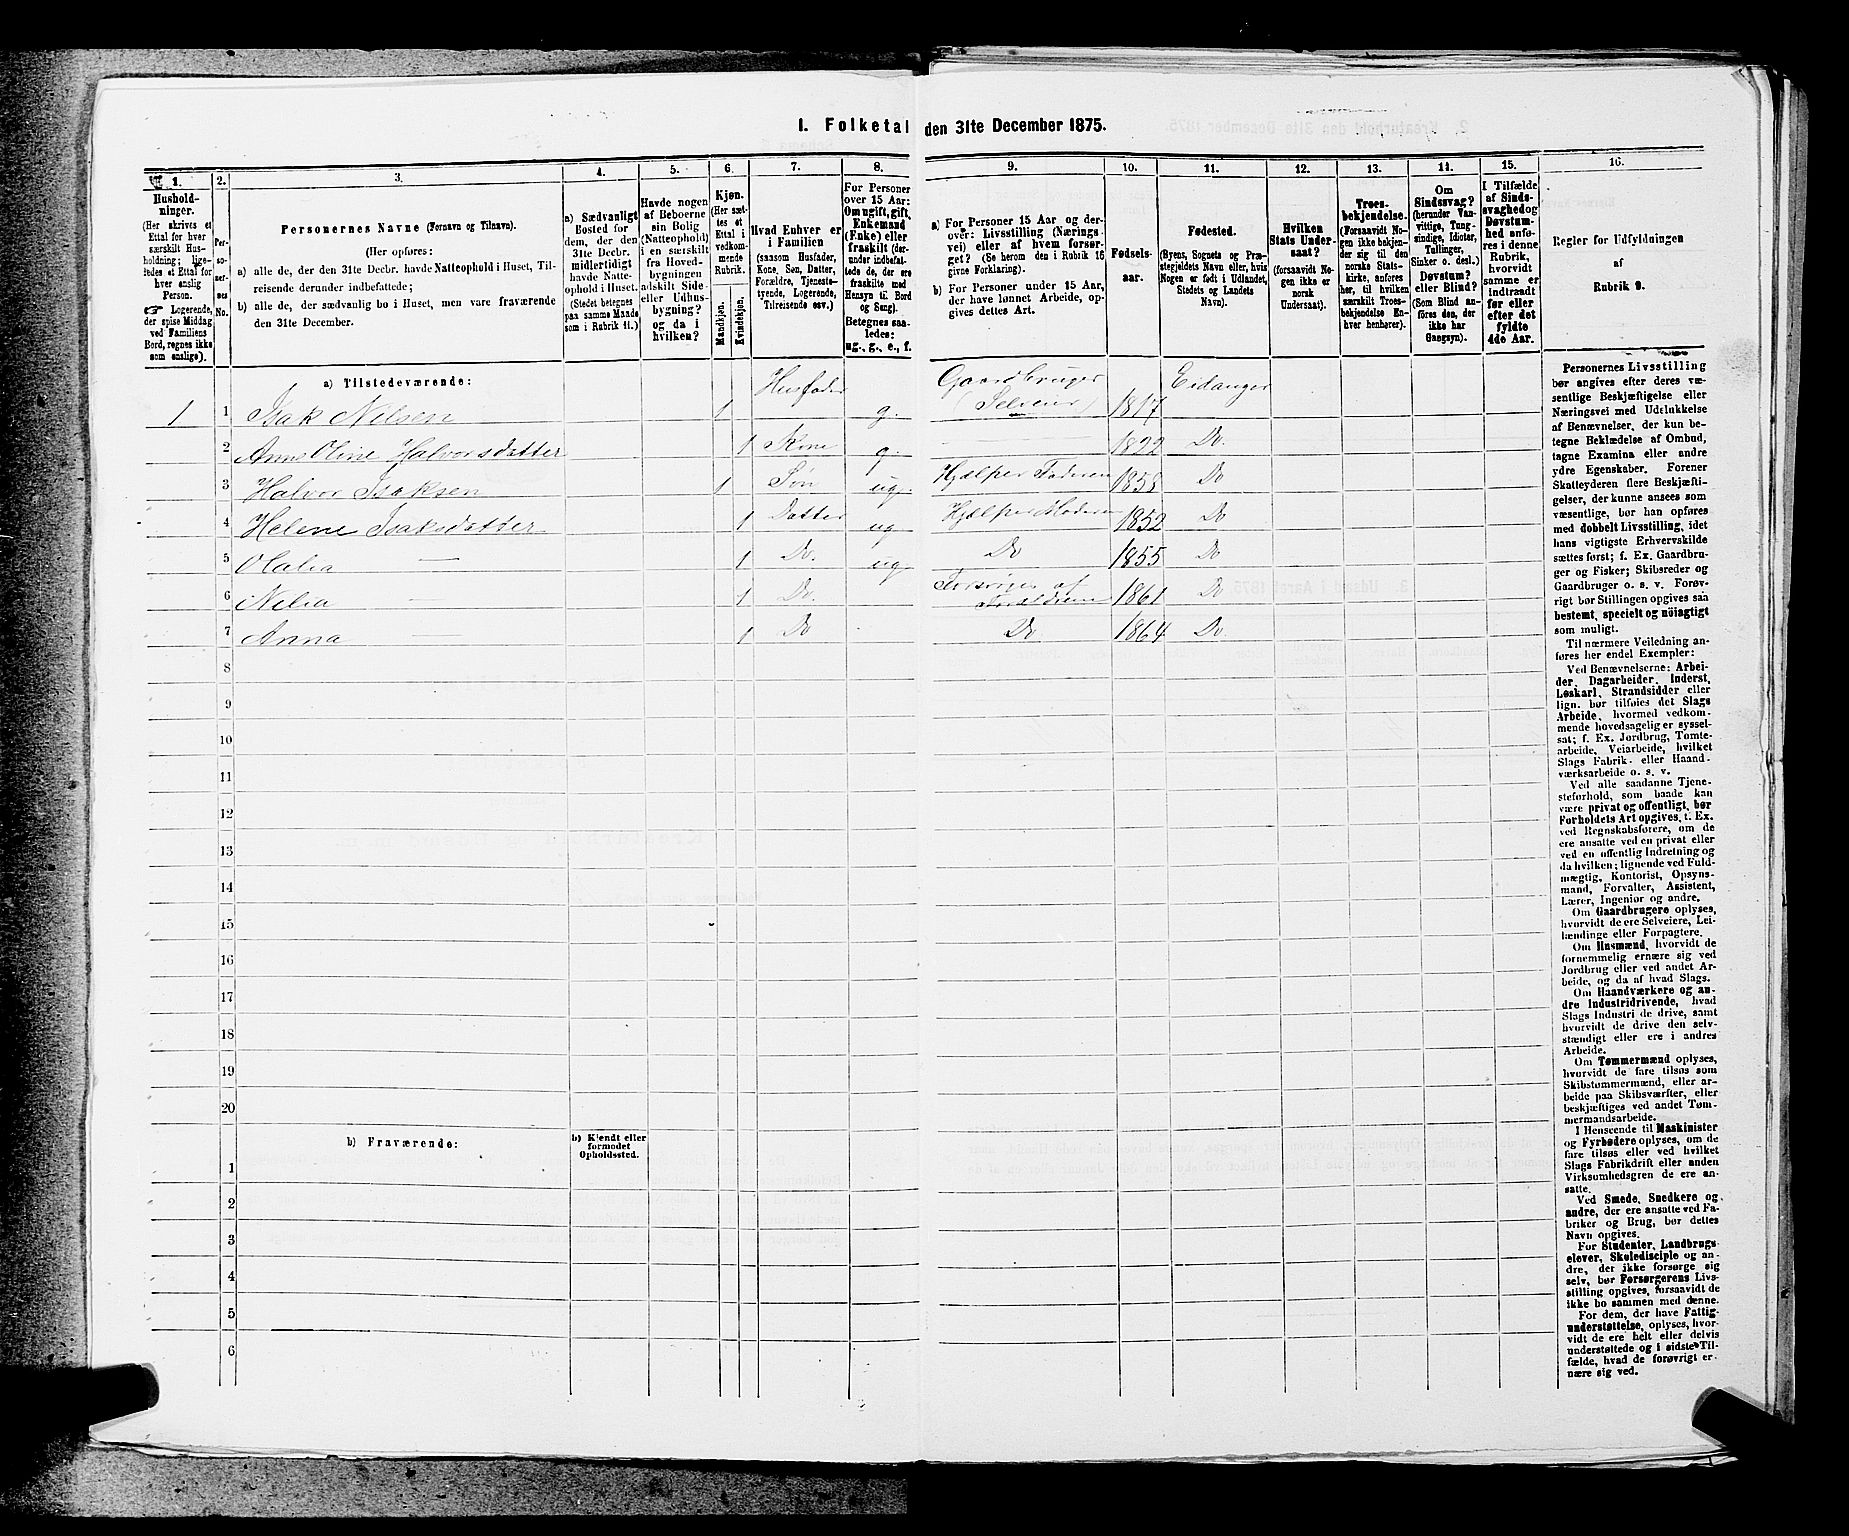 I. Folketal den 31te December 1875.
1.
Husholdninger.
(Her skrives et
Ettal for hver
særskilt Husholdning; ligeledes et Ettal for
hver enslig
Person.
☞ Logerende,
der spise Middag
ved Familiens
Bord, regnes ikke
som enslige).
2.
Personernes
No.
3.
Personernes Navne (Fornavn og Tilnavn).
(Her opføres:
a) alle de, der den 31te Decbr. havde Natteophold i Huset, Tilreisende derunder indbefattede;
b) alle de, der sædvanlig bo i Huset, men vare fraværende
den 31te December.
4.
a) Sædvanligt
Bosted for
dem, der den
31te Decbr.
midlertidigt
havde Natteophold i Huset.
(Stedet betegnes
paa samme Maade
som i Rubrik 11.)
5.
Havde nogen
af Beboerne
sin Bolig
(Natteophold)
i en særskilt
fra Hovedbygningen
adskilt Side- eller Udhusbygning?
og da i
hvilken?
6.
Kjøn.
(Her sættes et
Ettal i
vedkommende
Rubrik.
Mandkjøn.
Kvindekjøn.
7.
Hvad Enhver er
i Familien
(saasom Husfader,
Kone, Søn, Datter,
Forældre, Tjenestetyende, Logerende,
Tilreisende osv.)
8.
For Personer
over 15 Aar:
Om ugift, gift,
Enkemand
(Enke) eller
fraskilt (derunder indbefattede de, der ere
fraskilte med
Hensyn til Bord
og Seng).
Betegnes saaledes:
ug., g., e., f.
9.
a) For Personer 15 Aar og derover: Livsstilling (Næringsvei) eller af hvem forsørget? (Se herom den i Rubrik 16
givne Forklaring).
b) For Personer under 15 Aar,
der have lønnet Arbeide, opgives dettes Art.
10.
Fødselsaar.
11.
Fødested.
(Byens, Sognets og Præstegjeldets Navn eller, hvis
Nogen er født i Udlandet,
Stedets og Landets
Navn).
12.
Hvilken
Stats Undersaat?
(forsaavidt Nogen ikke er
norsk
Undersaat).
13.
Troesbekjendelse.
(Forsaavidt Nogen ikke bekjender sig til den
norske Statskirke, anføres
her, til hvilken
særskilt Troesbekjendelse Enhver henhører).
14.
Om
Sindssvag?
(herunder Vanvittige, Tungsindige, Idioter,
Tullinger,
Sinker o. desl.)
Døvstum?
eller Blind?
(Som Blind anføres den, der
ikke har
Gangsyn).
15.
I Tilfælde
af Sindssvaghed og
Døvstumhed anføres i denne
Rubrik,
hvorvidt
samme er
indtraadt
før eller
efter det
fyldte
4de Aar.
16.
Regler for Udfyldningen
af
Rubrik 9.
a) Tilstedeværende:
1 1 Isak Nilsen 1 Husfader g. Gaardbruger (Selveier) 1817 Eidanger
2 Anne Oline Halvorsdatter 1 Kone g. — 1822 Do.
3 Halvor Isaksen 1 Søn ug. Hjælper Faderen 1858 Do
4 Helene Isaksdatter 1 Datter ug Hjælper Moderen 1852 Do
5 Olalia — 1 Do. ug. Do 1855 Do
6 Nelia — 1 Do. Forsørges af Forældrene 1861 Do
7 Anna — 1 Do Do 1864 Do
8
9
10
11
12
13
14
15
16
17
18
19
20
b) Fraværende:
b) Kjendt eller
formodet
Opholdssted.
1
2
3
4
5
6
Personernes Livsstilling
bør angives efter deres væsentlige Beskjæftigelse eller
Næringsvei med Udelukkelse
af Benævnelser, der kun betegne Beklædelse af Ombud,
tagne Examina eller andre
ydre Egenskaber. Forener
Skatteyderen flere Beskjæftigelser, der kunne ansees som
væsentlige, bør han opføres
med dobbelt Livsstilling, idet
hans vigtigste Erhvervskilde
sættes først; f. Ex. Gaardbruger og Fisker; Skibsreder og
Gaardbruger o. s. v. Forøvrigt bør Stillingen opgives saa
bestemt, specielt og nöiagtigt
som muligt.
Til nærmere Veiledning anføres her endel Exempler:
Ved Benævnelserne: Arbeider, Dagarbeider, Inderst,
Løskarl, Strandsidder eller
lign. bør tilføies det Slags
Arbeide, hvormed vedkommende hovedsagelig er sysselsat; f. Ex. Jordbrug, Tomtearbeide, Veiarbeide, hvilket
Slags Fabrik- eller Haandværksarbeide o. s. v.
Ved alle saadanne Tjenesteforhold, som baade kan
være privat og offentligt, bør
Forholdets Art opgives, t. Ex.
ved Regnskabsførere, om de
ere ansatte ved en privat eller
ved en offentlig Indretning og
da hvilken; lignende ved Fuldmægtig, Kontorist, Opsynsmand, Forvalter, Assistent,
Lærer, Ingeniør og andre.
Om Gaardbrugere oplyses,
hvorvidt de ere Selveiere, Leilændinge eller Forpagtere.
Om Husmænd, hvorvidt de
fornemmelig ernære sig ved
Jordbrug eller ved andet Arbeide, og da af hvad Slags.
Om Haandværkere og andre Industridrivende, hvad
Slags Industri de drive, samt
hvorvidt de drive den selvstændigt eller ere i andres
Arbeide.
Om Tømmermænd oplyses,
hvorvidt de fare tilsøs som
Skibstømmermænd, eller arbeide paa Skibsværfter, eller
beskjæftiges ved andet Tømmermandsarbeide.
I Henseende til Maskinister
og Fyrbødere oplyses, om de
fare tilsøs eller ved hvilket
Slags Fabrikdrift eller anden
Virksomhedsgren de ere ansatte.
Ved Smede, Snedkere og
andre, der ere ansatte ved Fabriker og Brug, bør dettes
Navn opgives.
For Studenter, Landbrugselever, Skoledisciple og andre, der ikke forsørge sig
selv, bør Forsørgerens Livsstilling opgives, forsaavidt de
ikke bo sammen med denne.
For dem, der have Fattigunderstøttelse, oplyses, hvorvidt de ere helt eller delvis
understøttede og i sidste Tilfælde, hvad de forøvrigt ernære sig ved.